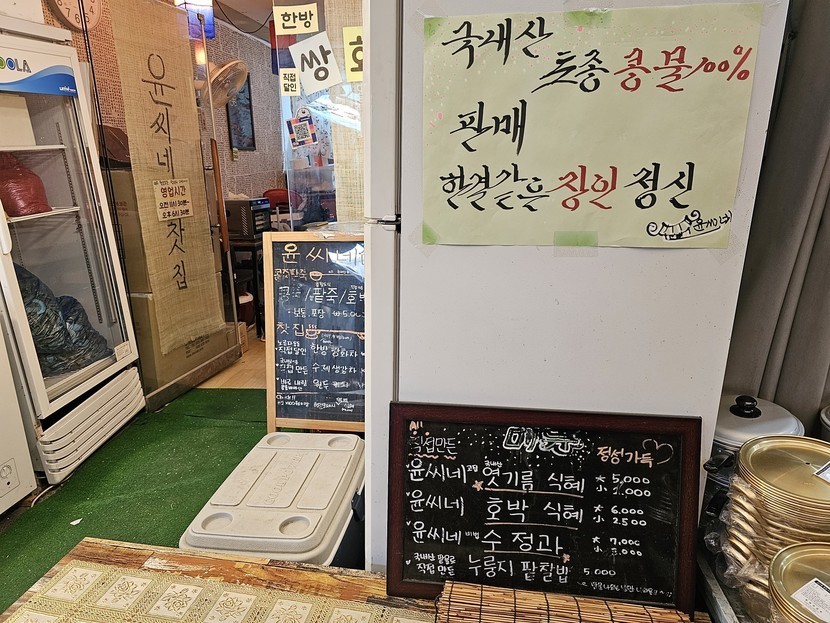 한방
쌍
직접
달인
윤씨네
찻집
영업시간
오전 11시 30분~
오후 6시 30분
국내산
토종 콩물 100%
판매
한결같은 장인 정신
윤씨네
윤씨네
콩죽/팥죽/호박
찻집
직접달인 한방 쌍화차
직접만든 수제 생강차
원두 커피
All
직접만든
정성가득
윤씨네 고향 국내산 엿기름 식혜 大 5,000
小
윤씨네 호박 식혜 大 6,000
小 2500
윤씨네 비법 수정과 大 7,000
小 3,000
국내산 팥알로
직접 만든 누룽지 팥찰밥 5,000